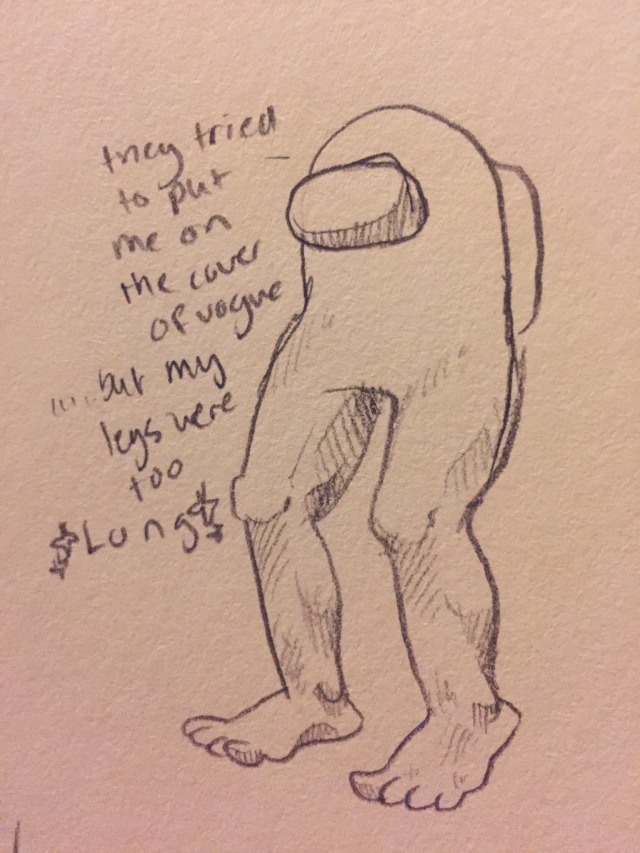 they tried
to put
me on
the cover
of vogue
....but my
legs were
too
Lung